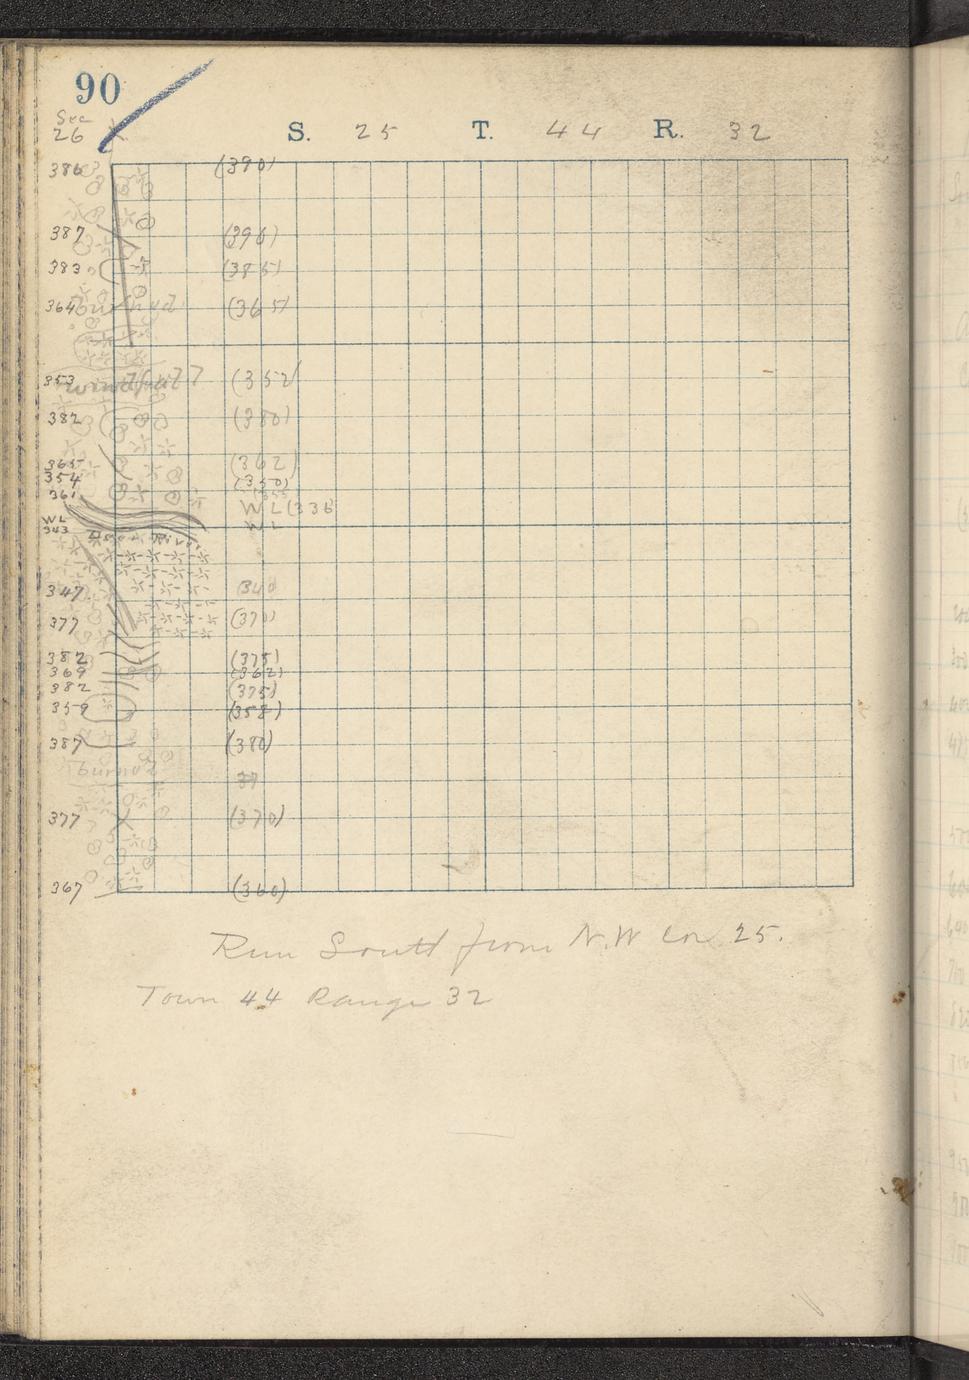 90
Sec
26
S. 25 T. 44 R. 32
386 (390)
387 (396)
383 (385)
364 (365)
353 windfall (352)
382 (380)
365 (362)
354 (350)
361 (355
WL (336
WL WL
343
347 340
377 (370)
382 (375)
369 (362)
382 (375)
359 (358)
387 (380)
burned
377 (370)
367 (360)
Run South from N.W Cor 25.
Town 44 Range 32